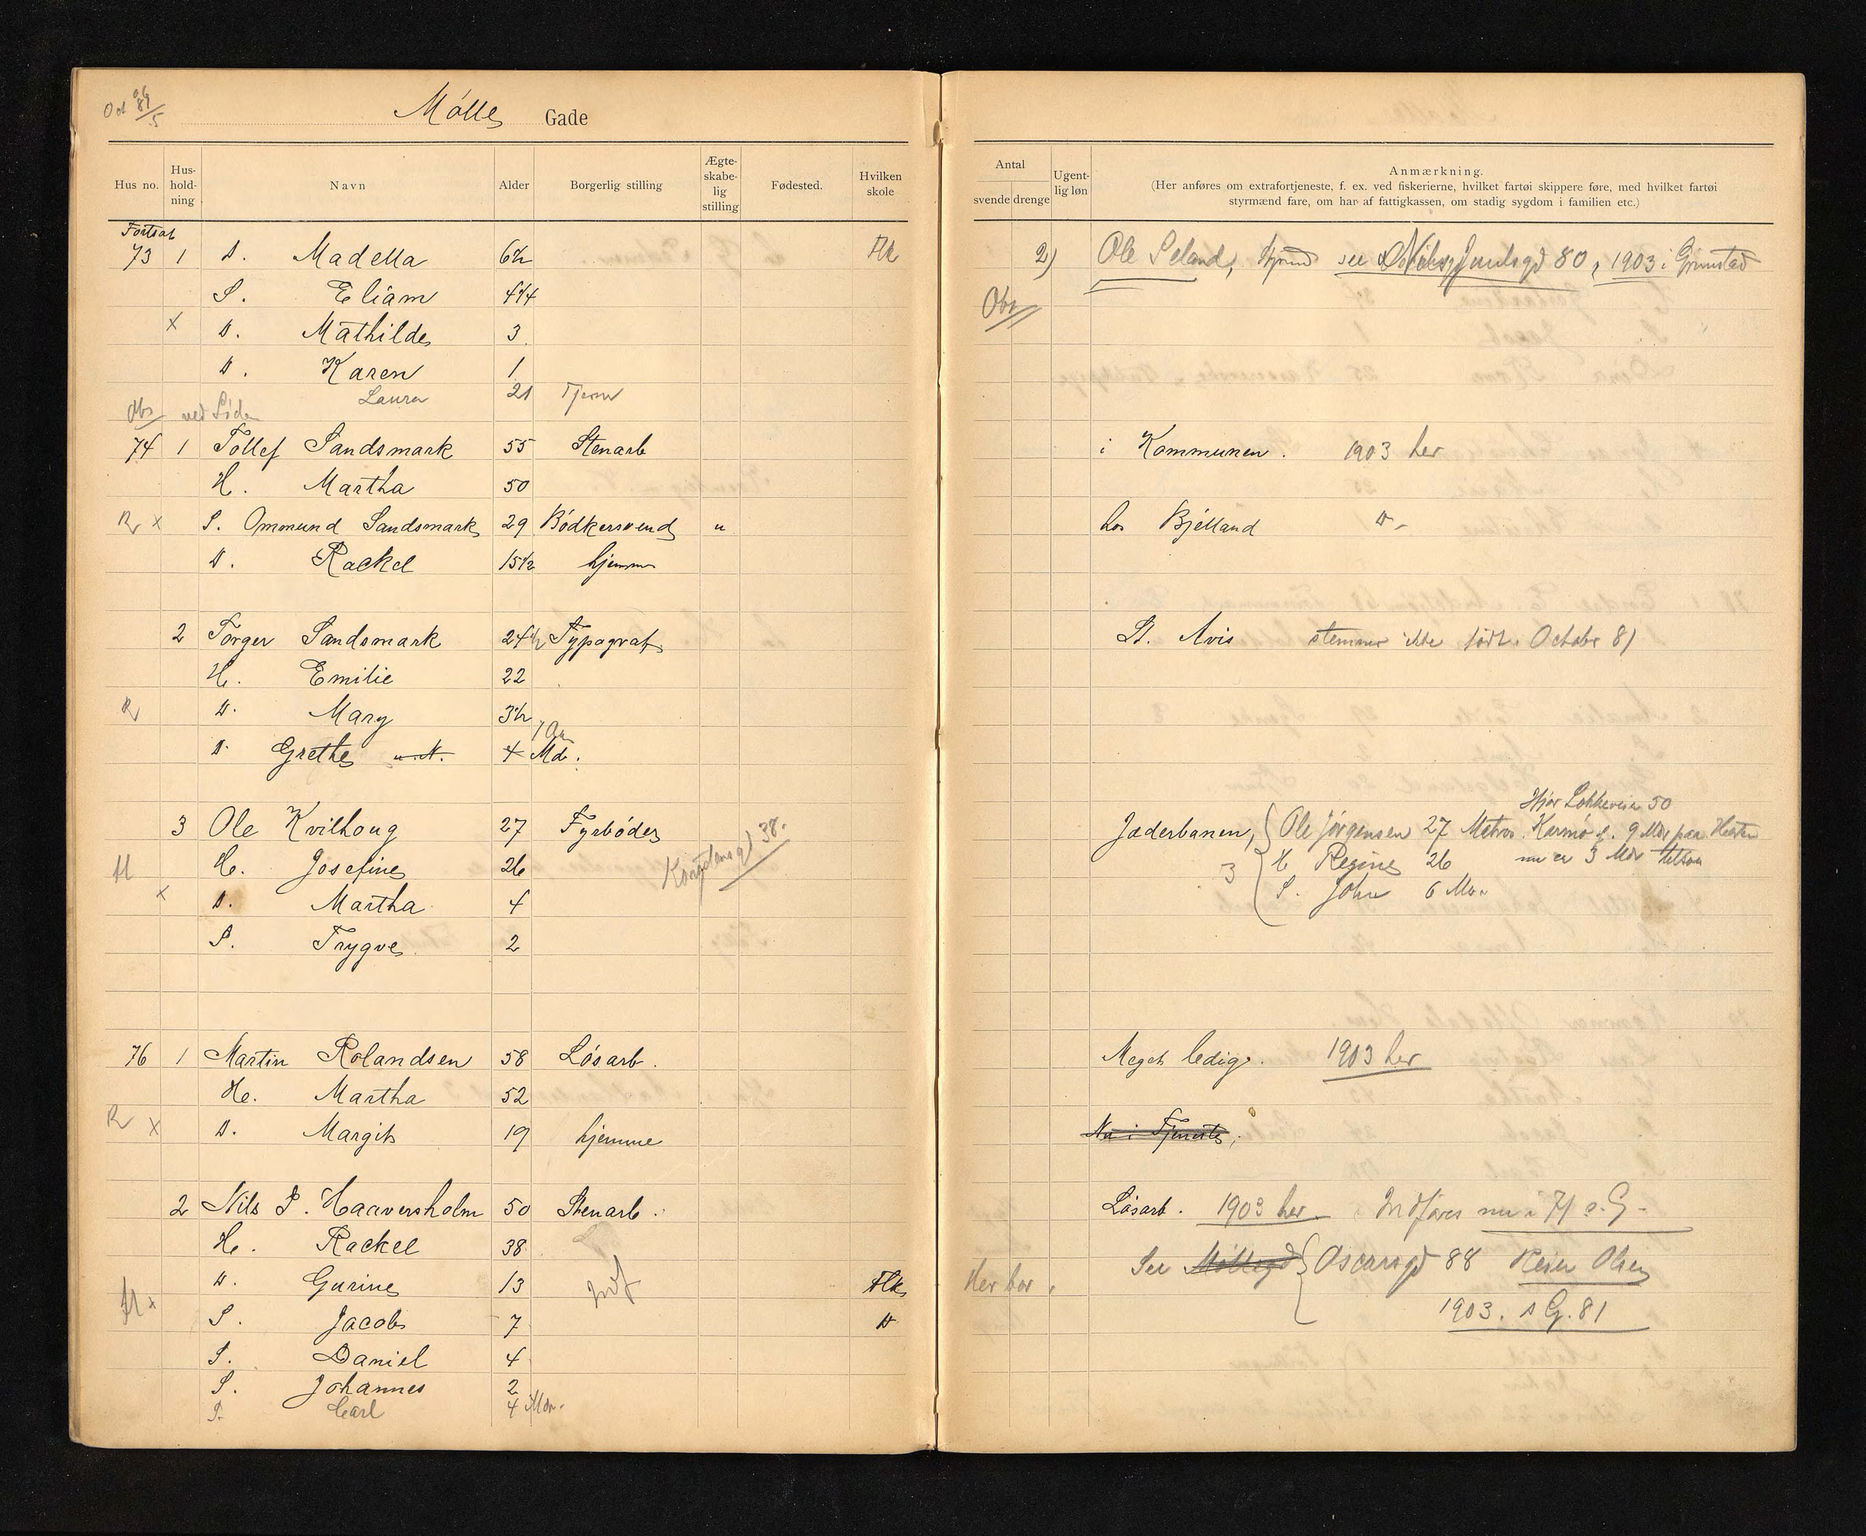 Mølle Gade
Hus no. Hus-hold-ning Navn Alder Borgerlig stilling Ægte-skabe-lig stilling Fødested. Hvilken skole
Antal svende drenge Ugent-lig løn Anmærkning.
(Her anføres om extrafortjeneste, f. ex. ved fiskerierne, hvilket fartøi skippere føre, med hvilket fartøi
styrmænd fare, om har af fattigkassen, om stadig sygdom i familien etc.)
Fortsat
73 1 D. Madella 6½ Flk 2) Ole Seland, see 80, 1903 i Grimstad
S. Eliam 4¼ Obs
x D. Mathilde 3
D. Karen 1
Laura 21 Tjener
Obs ved Siden
74 1 Tollef Sandsmark 55 Stenarb i Kommunen. 1903 her
H. Martha 50
R x S. Ommund Sandsmark 29 Bødkersvend u hos Bjelland D-
D. Rackel 15½ hjemme
2 Torger Sandsmark 24½ Typograf St. Avis stemmer ikke født October 81
H. Emilie 22
R D. Mary 3½
D. Grethe u. N. 4 Md. 1 Aar
Hjør Løkkeveien 50
3 Ole Kvilhoug 27 Fyrbøder Jæderbanen, Ole Jørgensen 27 Matros Karmø f. 9 Mdr paa Hesten
H. Josefine 26 Kongstensgd 38. 3 H Regine 26 nu er 3 Mdr
x D. Martha 4 S. John 6 Mdr.
S. Trygve 2
76 1 Martin Rolandsen 58 Løsarb. Meget ledig. 1903 her
H. Martha 52
R x D. Margit 19 hjemme Nu i Tjeneste,
2 Nils P. Haaversholm 50 Stenarb. Løsarb. 1903 her Indføres nu i 71 s. G-
H. Rackel 38 See Møllegd Oscarsgd 88 Olsen
D. Gurine 13 Flk Her bor,
x S. Jacob 7 D 1903. s G. 81
S. Daniel 4
S. Johannes 2
S. Carl 4 Mdr.